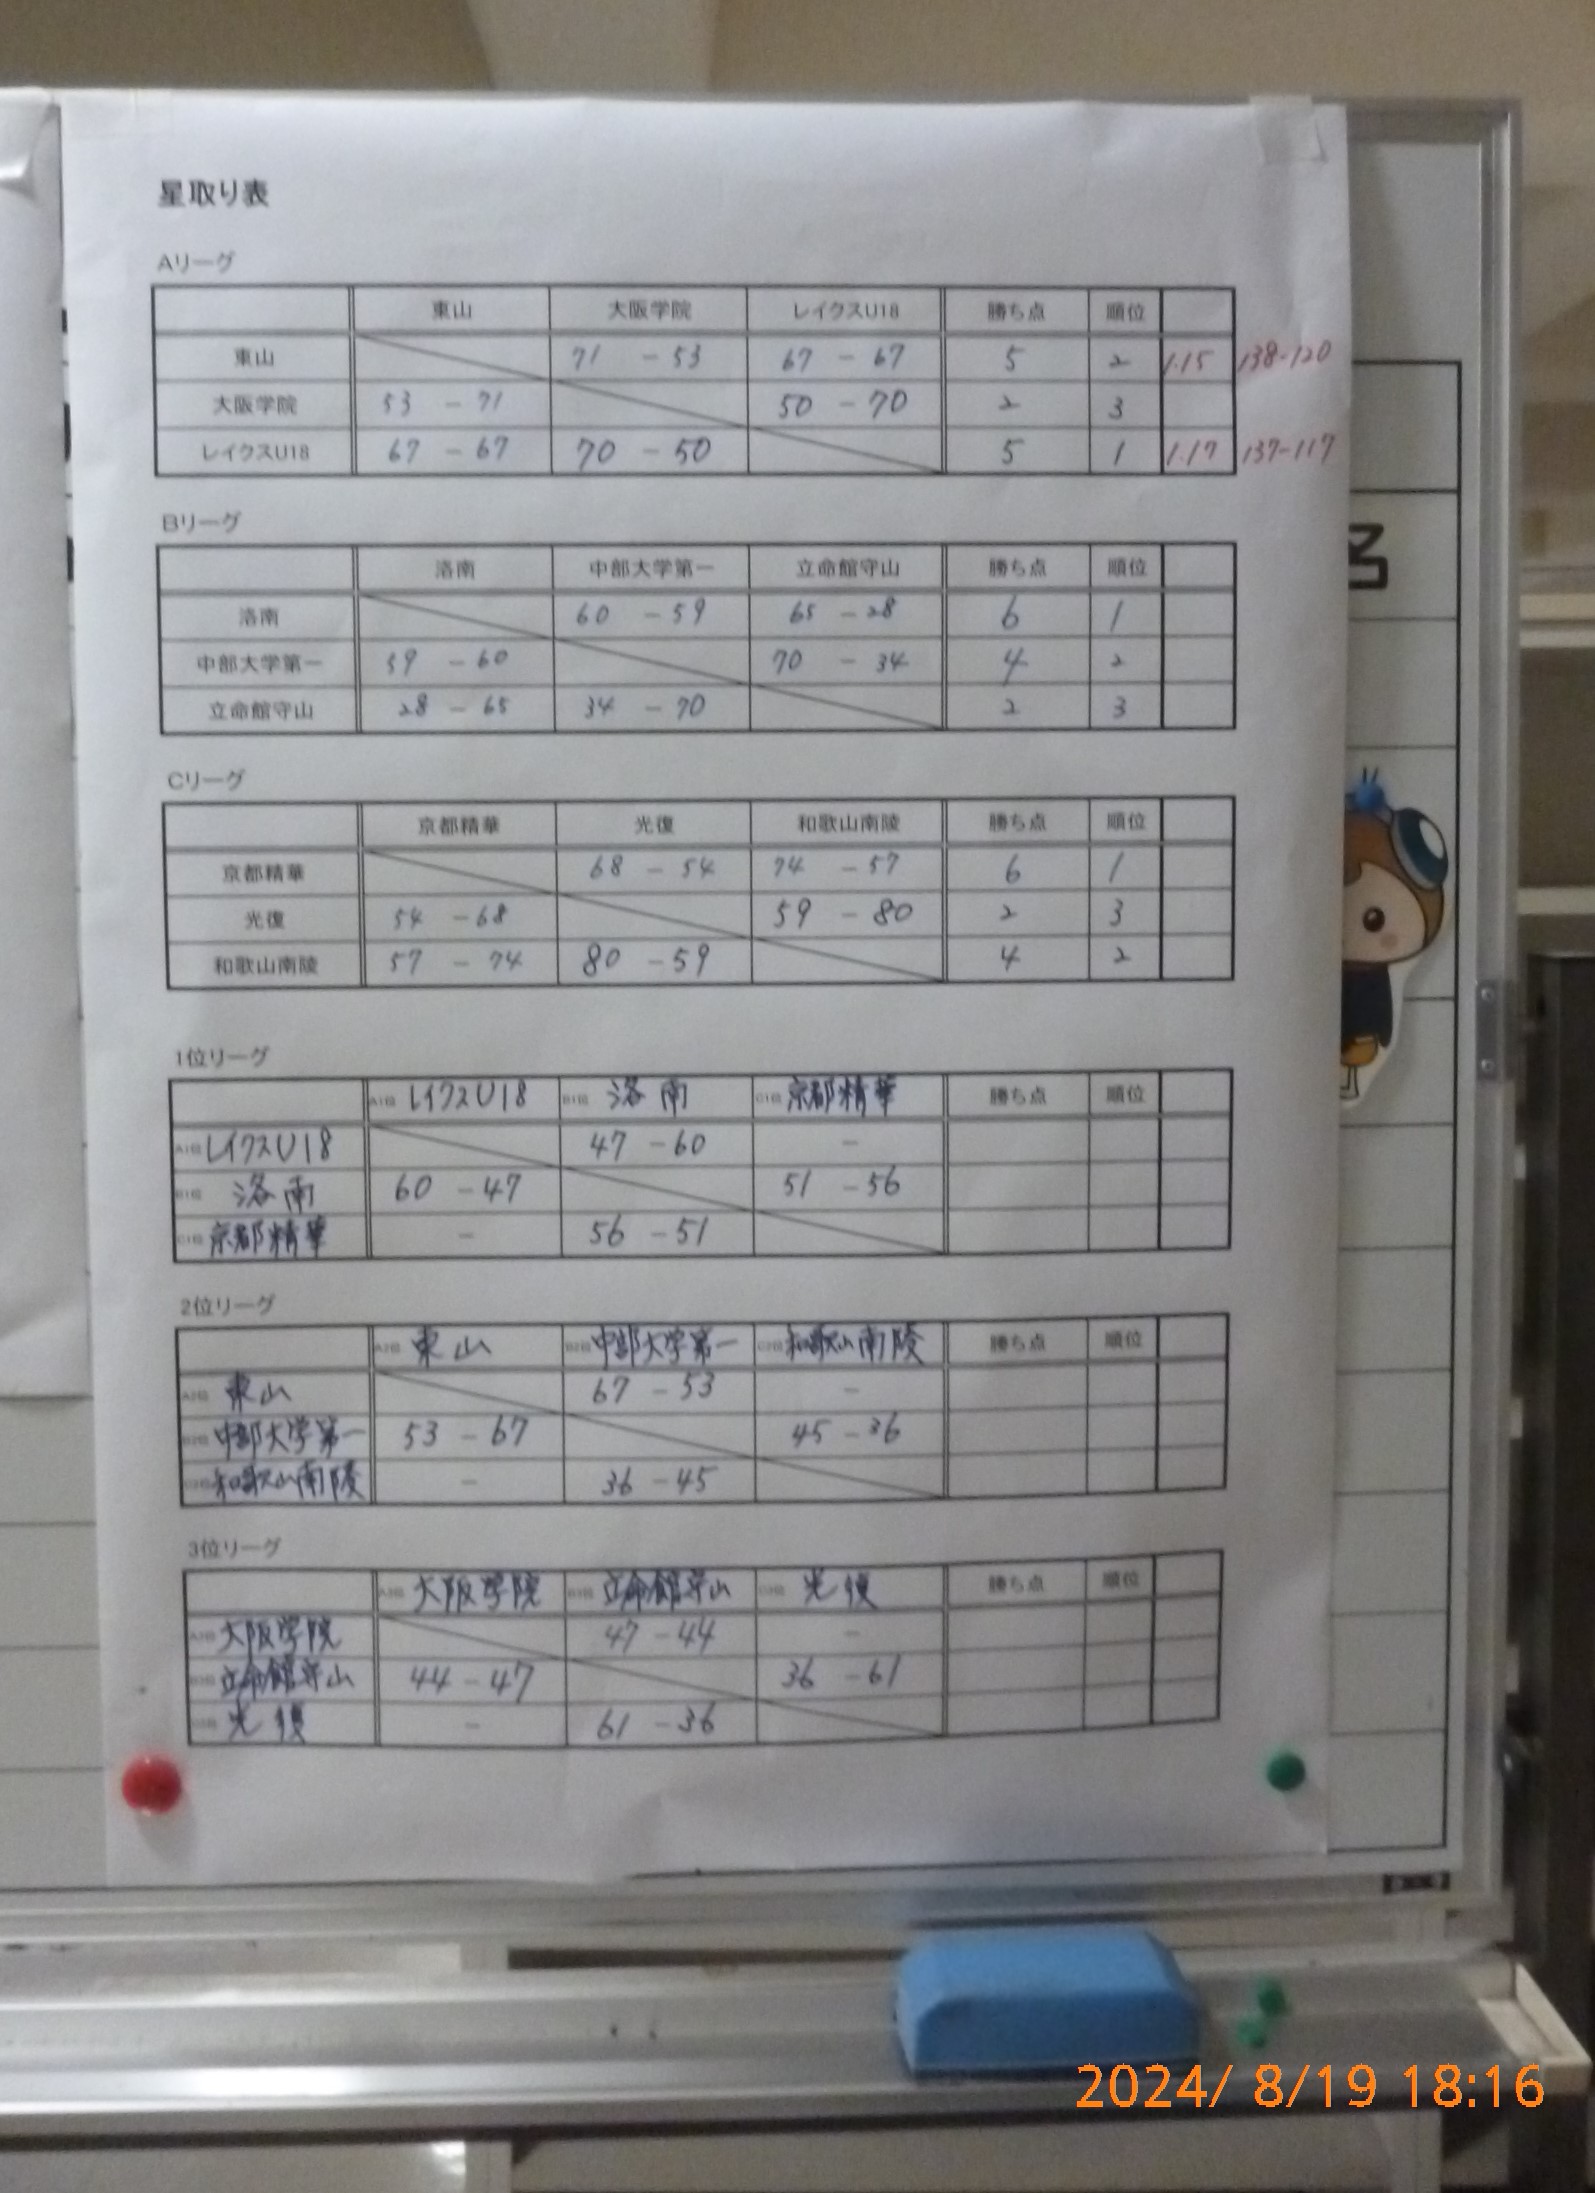 星取り表
Aリーグ
東山 大阪学院 レイクスU18 勝ち点 順位
東山 71 - 53 67 - 67 5 2 1.15 138-120
大阪学院 53 - 71 50 - 70 2 3
レイクスU18 67 - 67 70 - 50 5 1 1.17 137-117
Bリーグ
洛南 中部大学第一 立命館守山 勝ち点 順位
洛南 60 - 59 65 - 28 6 1
中部大学第一 59 - 60 70 - 34 4 2
立命館守山 28 - 65 34 - 70 2 3
Cリーグ
京都精華 光復 和歌山南陵 勝ち点 順位
京都精華 68 - 54 74 - 57 6 1
光復 54 - 68 59 - 80 2 3
和歌山南陵 57 - 74 80 - 59 4 2
1位リーグ
A1位 レイクスU18 B1位 洛南 C1位 京都精華 勝ち点 順位
A1位 レイクスU18 47 - 60 -
B1位 洛南 60 - 47 51 - 56
C1位 京都精華 - 56 - 51
2位リーグ
A2位 東山 B2位 中部大学第一 C2位 和歌山南陵 勝ち点 順位
A2位 東山 67 - 53 -
B2位 中部大学第一 53 - 67 45 - 36
C2位 和歌山南陵 - 36 - 45
3位リーグ
A3位 大阪学院 B3位 立命館守山 C3位 光復 勝ち点 順位
A3位 大阪学院 47 - 44 -
B3位 立命館守山 44 - 47 36 - 61
C3位 光復 - 61 - 36
2024/ 8/19 18:16